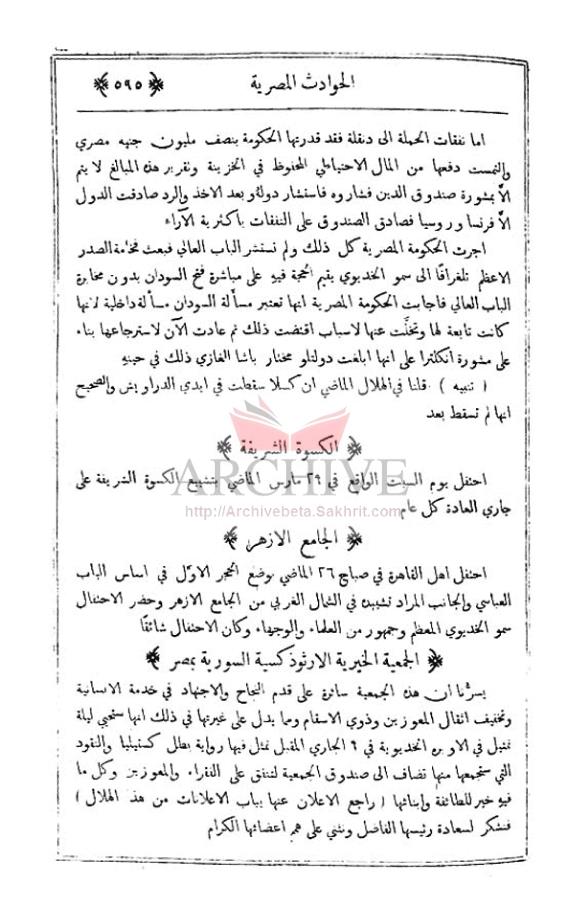 الحوادث المصرية
﴿ ٥٩٥ ﴾
اما نفقات الحملة الى دنقلة فقد قدرتها الحكومة بنصف مليون جنيه مصري
والتمست دفعها من المال الاحتياطي المحفوظ في الخزينة وتقرير هذه المبالغ لا يتم
الاَّ بمشورة صندوق الدين فشاروه فاستشار دولهُ وبعد الاخذ والرد صادقت الدول
الاَّ فرنسا وروسيا فصادق الصندوق على النفقات باكثرية الآراء
اجرت الحكومة المصرية كل ذلك ولم تستشر الباب العالي فبعث فخامة الصدر
الاعظم تلغرافًا الى سمو الخديوي يقيم الحجة فيهِ على مباشرة فتح السودان بدون مخابرة
الباب العالي فاجابت الحكومة المصرية انها تعتبر مسألة السودان مسألة داخلية لانها
كانت تابعة لها وتخلَّت عنها لاسباب اقتضت ذلك ثم عادت الآن لاسترجاعها بناء
على مشورة انكلترا على انها ابلغت دولتلو مختار باشا الغازي ذلك في حينهِ
( تنبيه ) قلنا في الهلال الماضي ان كسلا سقطت في ايدي الدراويش والصحيح
انها لم تسقط بعد
﴿ الكسوة الشريفة ﴾
ARCHIVE
احتفل يوم السبت الواقع في ٢٩ مارس الماضي بتشييع الكسوة الشريفة على
http://Archivebeta.Sakhrit.com
جاري العادة كل عام
﴿ الجامع الازهر ﴾
احتفل اهل القاهرة في صباح ٢٦ الماضي بوضع الحجر الاوَّل في اساس الباب
العباسي والجانب المراد تشييده في الشمال الغربي من الجامع الازهر وحضر الاحتفال
سمو الخديوي المعظم وجمهور من العلماء والوجهاء وكان الاحتفال شائقًا
﴿ الجمعية الخيرية الارثوذكسية السورية بمصر ﴾
يسرُّنا ان هذه الجمعية سائرة على قدم النجاح والاجتهاد في خدمة الانسانية
وتخفيف اثقال المعوزين وذوي الاسقام ومما يدل على غيرتها في ذلك انها ستحيي ليلة
تمثيل في الاوبره الخديوية في ٩ الجاري المقبل تمثل فيها رواية بطل كستيليا والنقود
التي ستجمعها منها تضاف الى صندوق الجمعية لتنفق على الفقراء والمعوزين وكل ما
فيهِ خير للطائفة وابنائها ( راجع الاعلان عنها بباب الاعلانات من هذا الهلال )
فنشكر لسعادة رئيسها الفاضل ونثني على همم اعضائها الكرام